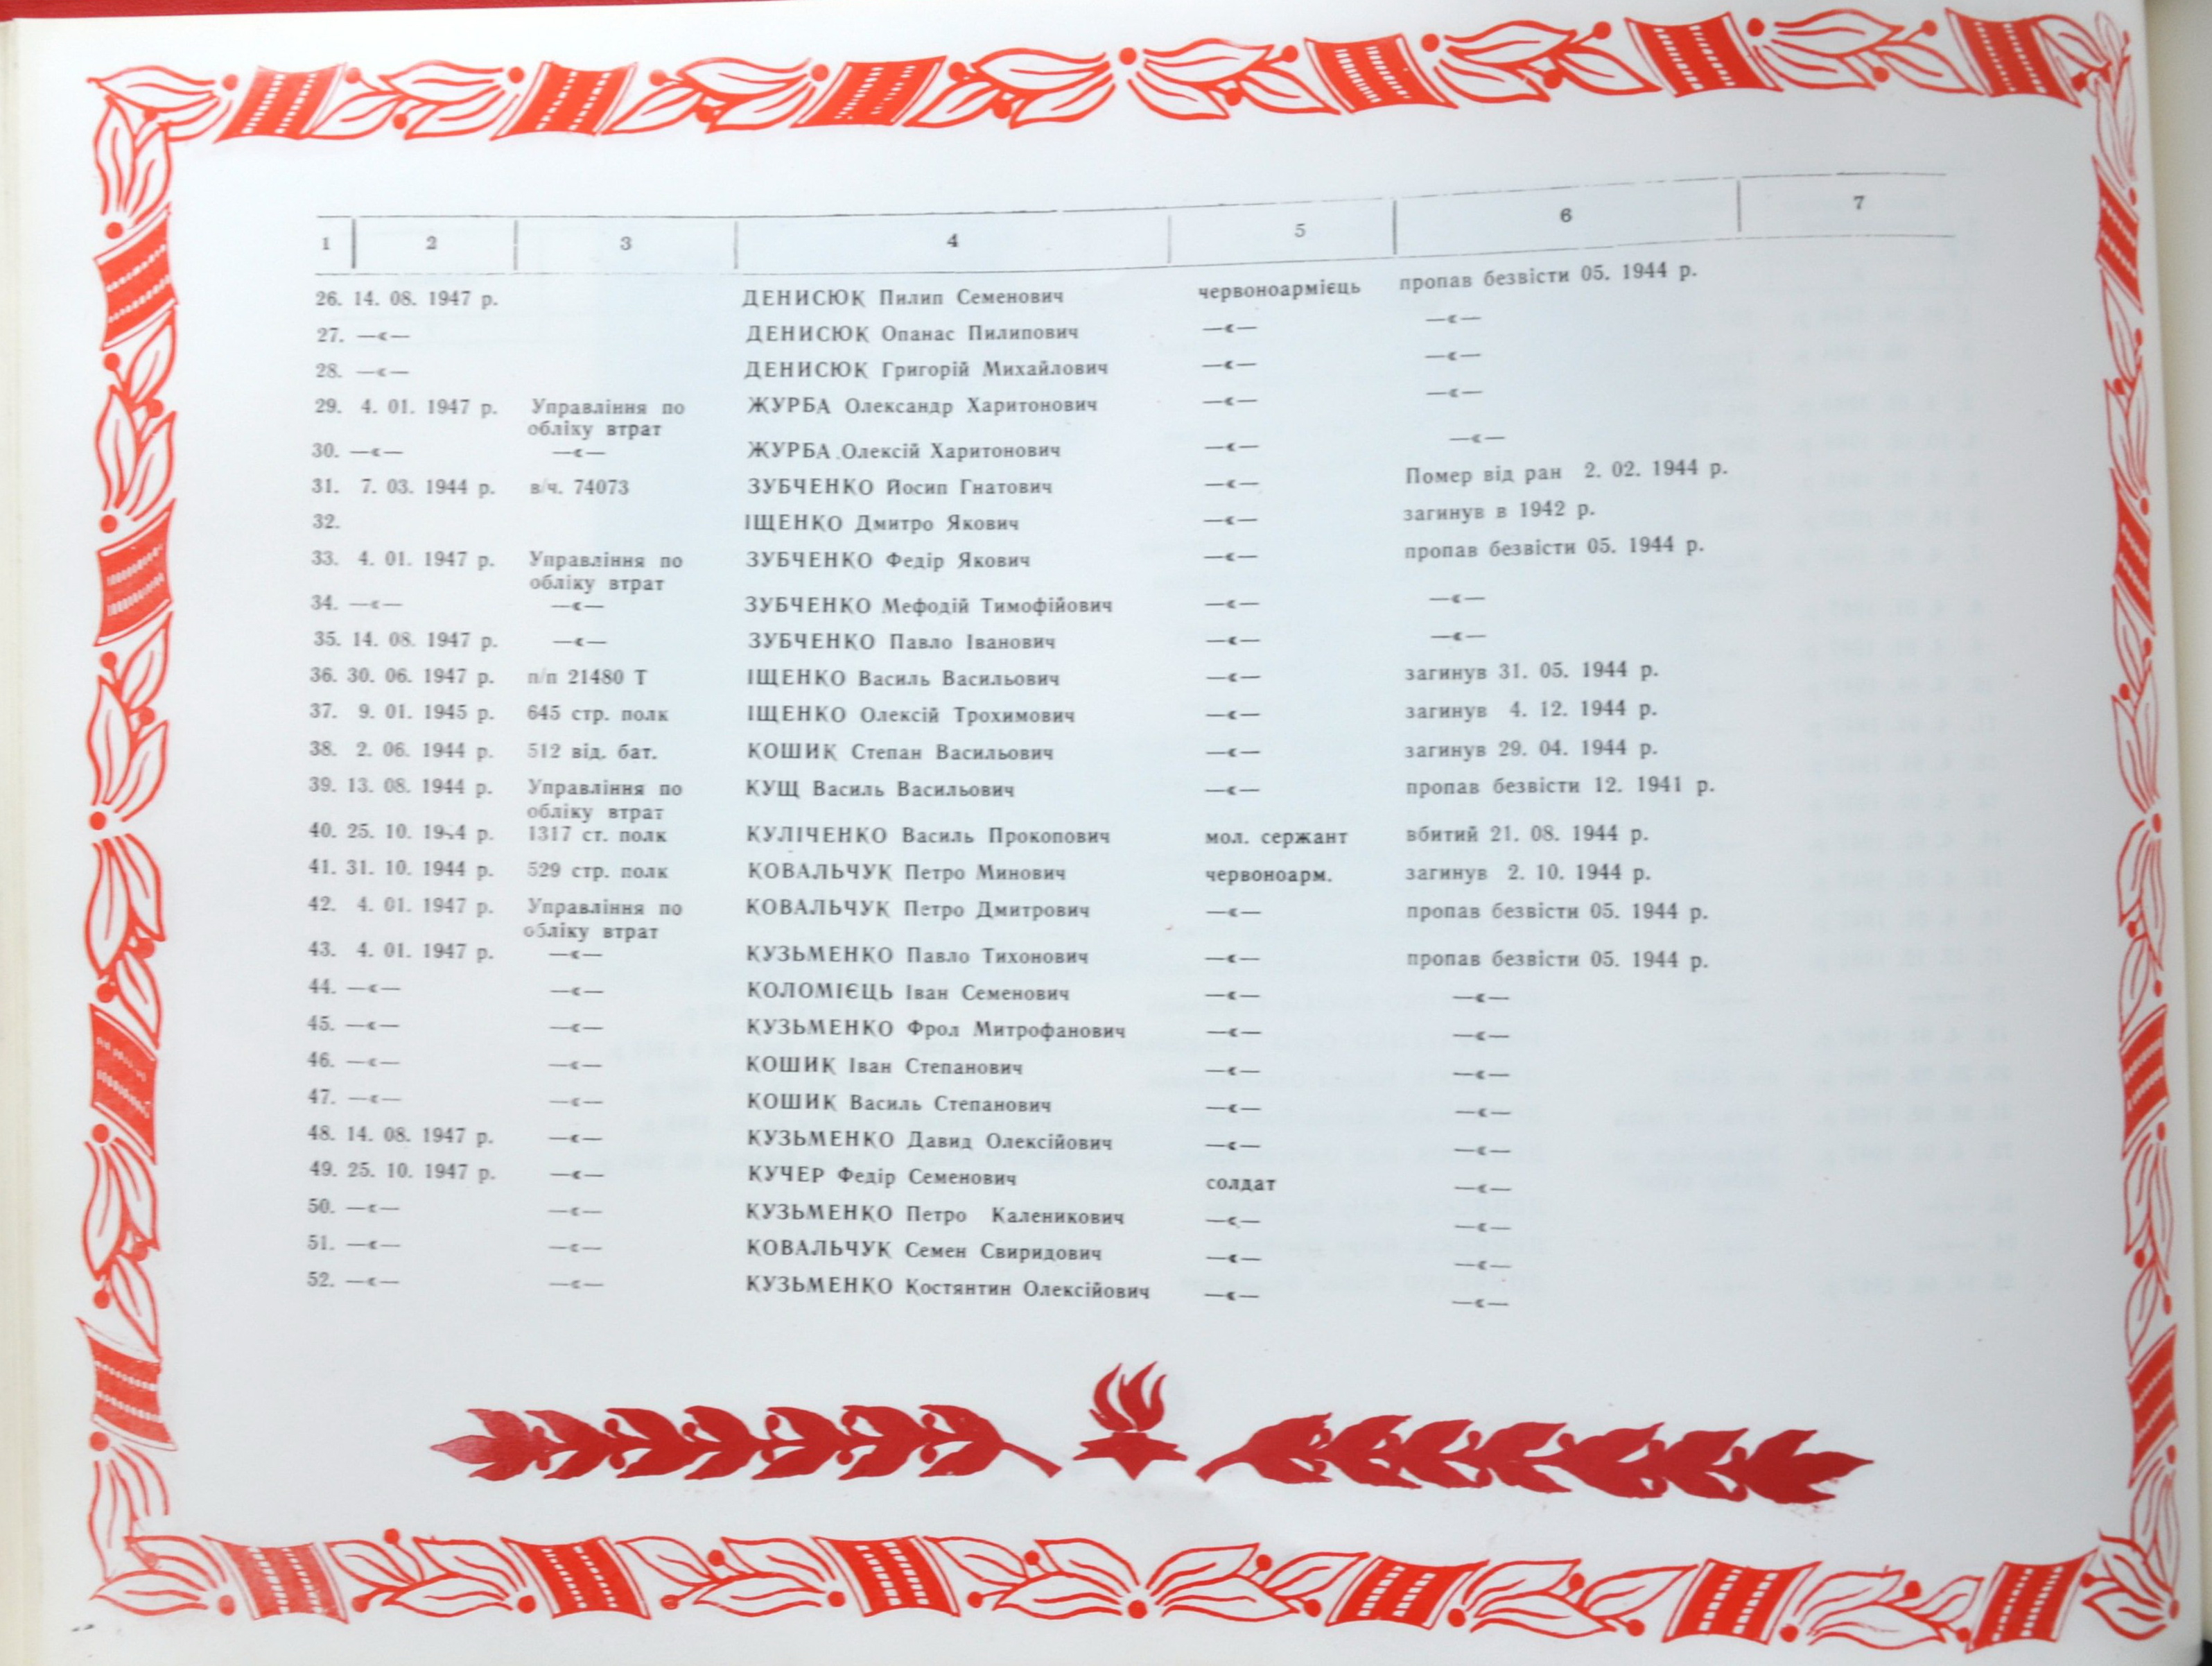 1 2 3 4 5 6 7
26. 14. 08. 1947 р. ДЕНИСЮК Пилип Семенович червоноармієць пропав безвісти 05. 1944 р.
27. —«— ДЕНИСЮК Опанас Пилипович —«— —«—
28. —«— ДЕНИСЮК Григорій Михайлович —«— —«—
29. 4. 01. 1947 р. Управління по ЖУРБА Олександр Харитонович —«— —«—
обліку втрат
30. —«— —«— ЖУРБА Олексій Харитонович —«— —«—
31. 7. 03. 1944 р. в/ч. 74073 ЗУБЧЕНКО Йосип Гнатович —«— Помер від ран 2. 02. 1944 р.
32. ІЩЕНКО Дмитро Якович —«— загинув в 1942 р.
33. 4. 01. 1947 р. Управління по ЗУБЧЕНКО Федір Якович —«— пропав безвісти 05. 1944 р.
обліку втрат
34. —«— —«— ЗУБЧЕНКО Мефодій Тимофійович —«— —«—
35. 14. 08. 1947 р. —«— ЗУБЧЕНКО Павло Іванович —«— —«—
36. 30. 06. 1947 р. п/п 21480 Т ІЩЕНКО Василь Васильович —«— загинув 31. 05. 1944 р.
37. 9. 01. 1945 р. 645 стр. полк ІЩЕНКО Олексій Трохимович —«— загинув 4. 12. 1944 р.
38. 2. 06. 1944 р. 512 від. бат. КОШИК Степан Васильович —«— загинув 29. 04. 1944 р.
39. 13. 08. 1944 р. Управління по КУЩ Василь Васильович —«— пропав безвісти 12. 1941 р.
обліку втрат
40. 25. 10. 1944 р. 1317 ст. полк КУЛІЧЕНКО Василь Прокопович мол. сержант вбитий 21. 08. 1944 р.
41. 31. 10. 1944 р. 529 стр. полк КОВАЛЬЧУК Петро Минович червоноарм. загинув 2. 10. 1944 р.
42. 4. 01. 1947 р. Управління по КОВАЛЬЧУК Петро Дмитрович —«— пропав безвісти 05. 1944 р.
обліку втрат
43. 4. 01. 1947 р. —«— КУЗЬМЕНКО Павло Тихонович —«— пропав безвісти 05. 1944 р.
44. —«— —«— КОЛОМІЄЦЬ Іван Семенович —«— —«—
45. —«— —«— КУЗЬМЕНКО Фрол Митрофанович —«— —«—
46. —«— —«— КОШИК Іван Степанович —«— —«—
47. —«— —«— КОШИК Василь Степанович —«— —«—
48. 14. 08. 1947 р. —«— КУЗЬМЕНКО Давид Олексійович —«— —«—
49. 25. 10. 1947 р. —«— КУЧЕР Федір Семенович солдат —«—
50. —«— —«— КУЗЬМЕНКО Петро Каленикович —«— —«—
51. —«— —«— КОВАЛЬЧУК Семен Свиридович —«— —«—
52. —«— —«— КУЗЬМЕНКО Костянтин Олексійович —«— —«—